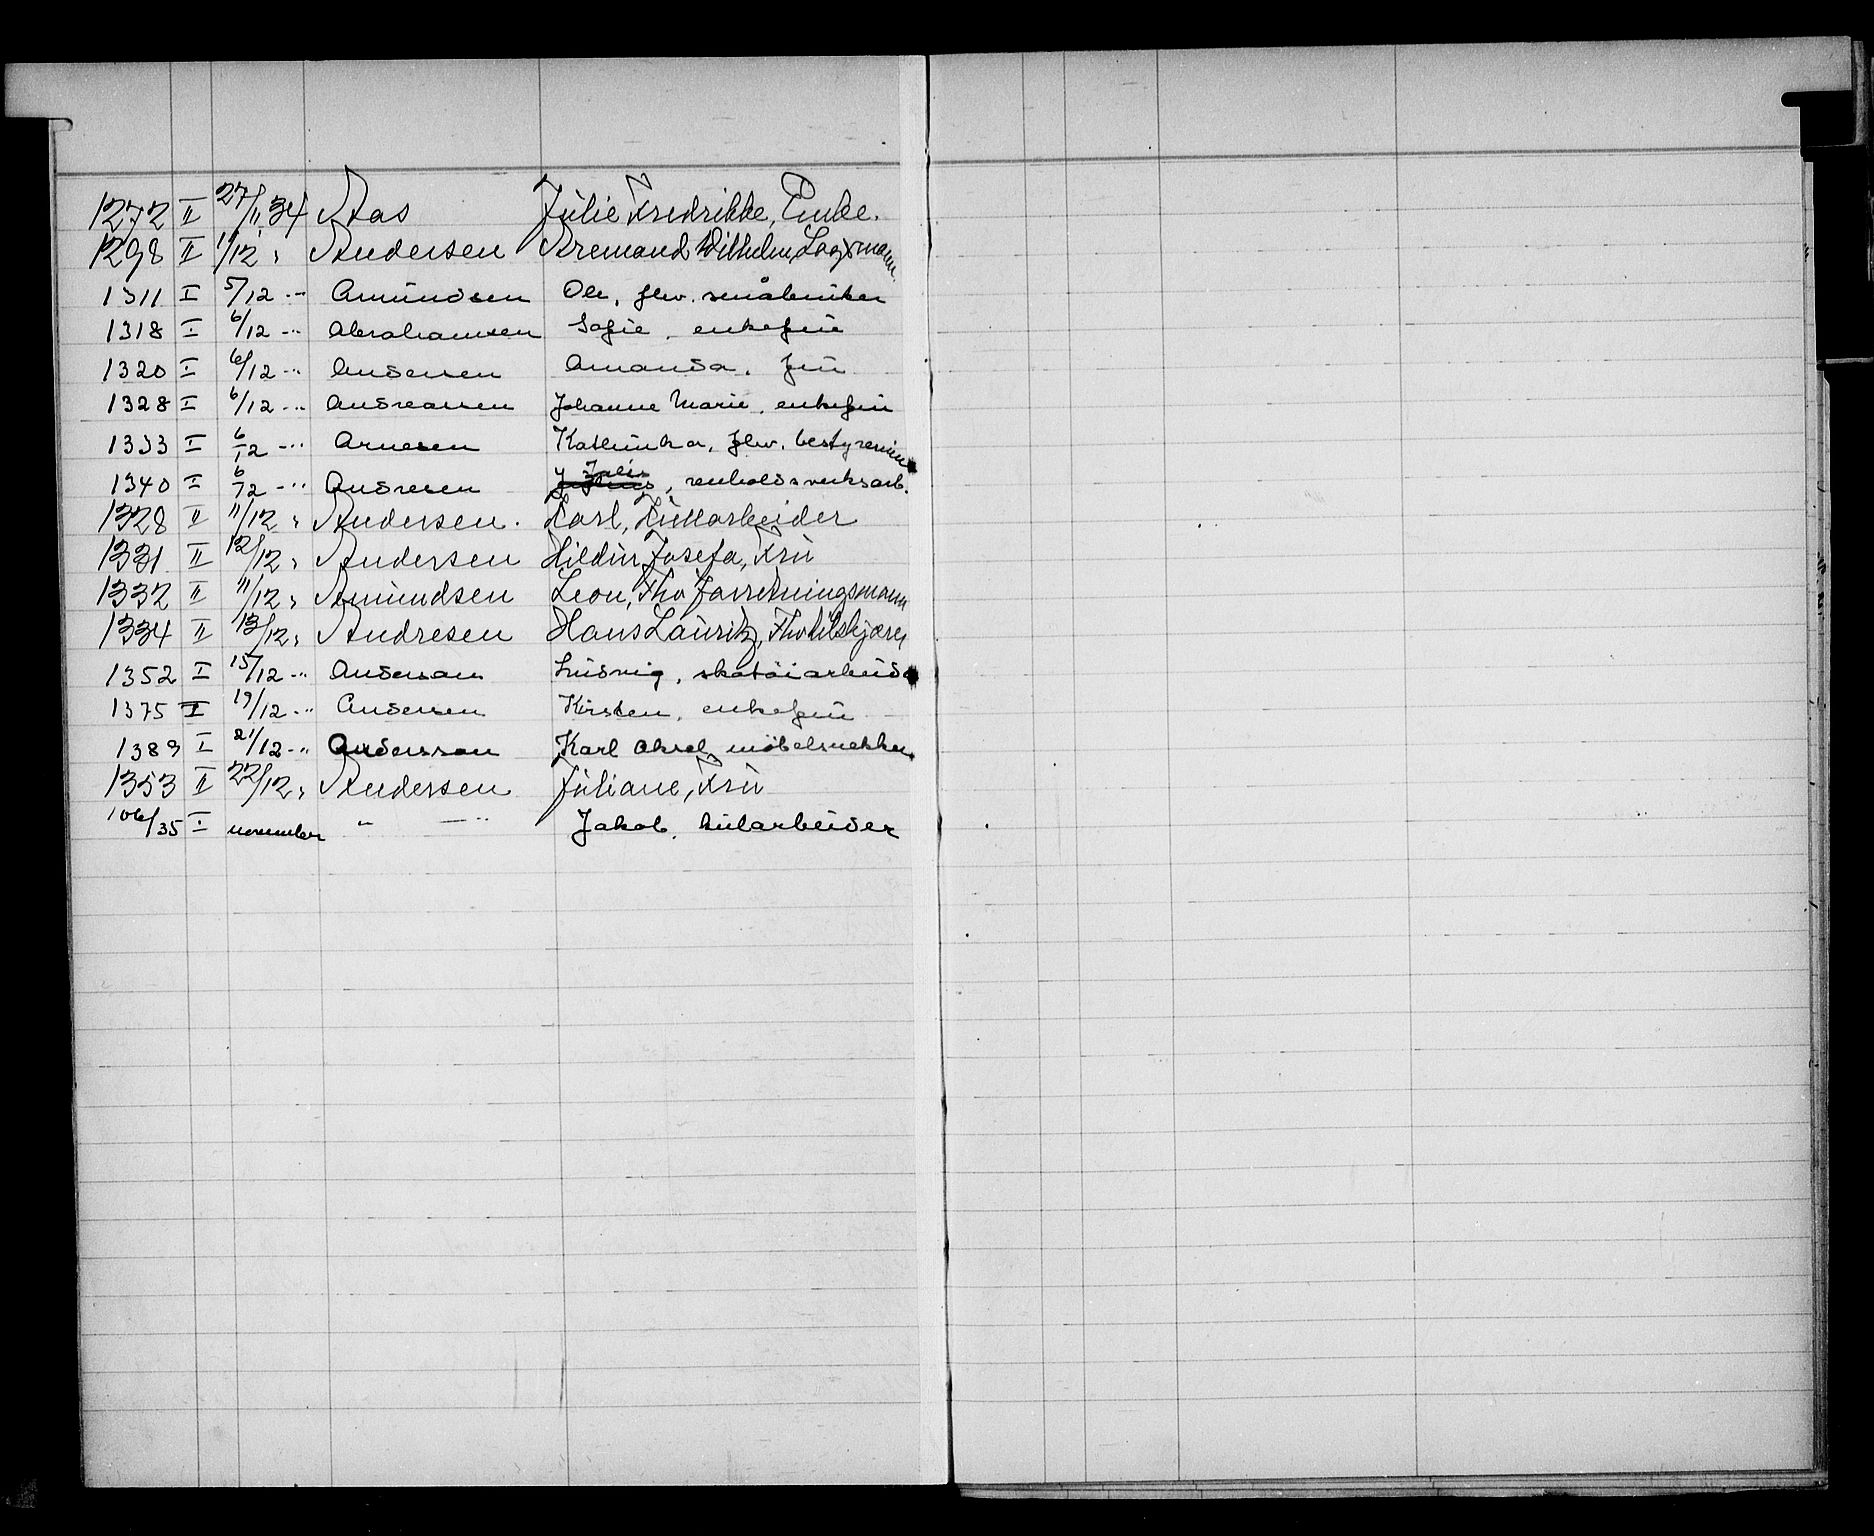 1272 II 27/11 34 Aas Julie Fredrikke, Enke.
1298 II 1/12 " Andersen Aremand Wilhelm, Lagermann
1311 I 5/12 -"- Amundsen Ole, fhv. småbruker
1318 I 6/12 -"- Abrahamsen Sofie, enkefru
1320 I 6/12 -"- Andersen Amanda, fru
1328 I 6/12 -"- Andreassen Johanne Marie, enkefru
1333 I 6/12 -"- Arnesen Kathinka, fhv. bestyrerinne
1340 I 6/12 -"- Andresen Julius, renholdsverksarb.
1328 II 11/12 " Andersen. Karl, Kullarbeider
1331 II 12/12 " Andersen Hildur Josefa, Fru
1332 II 11/12 " Amundsen Leon, Fhv Forretningsmann
1334 II 13/12 " Andresen Hans Lauritz, Fhv tilskjærer
1352 I 15/12 -"- Anderson Ludvig, skotøiarbeider
1375 I 19/12 -"- Andersen Kirsten, enkefru
1389 I 21/12 -"- Andersson Karl Aksel, møbelsnekker
1353 II 22/12 " Andersen Juliane, Fru
106/35 I november " -"- Jakob, kularbeider